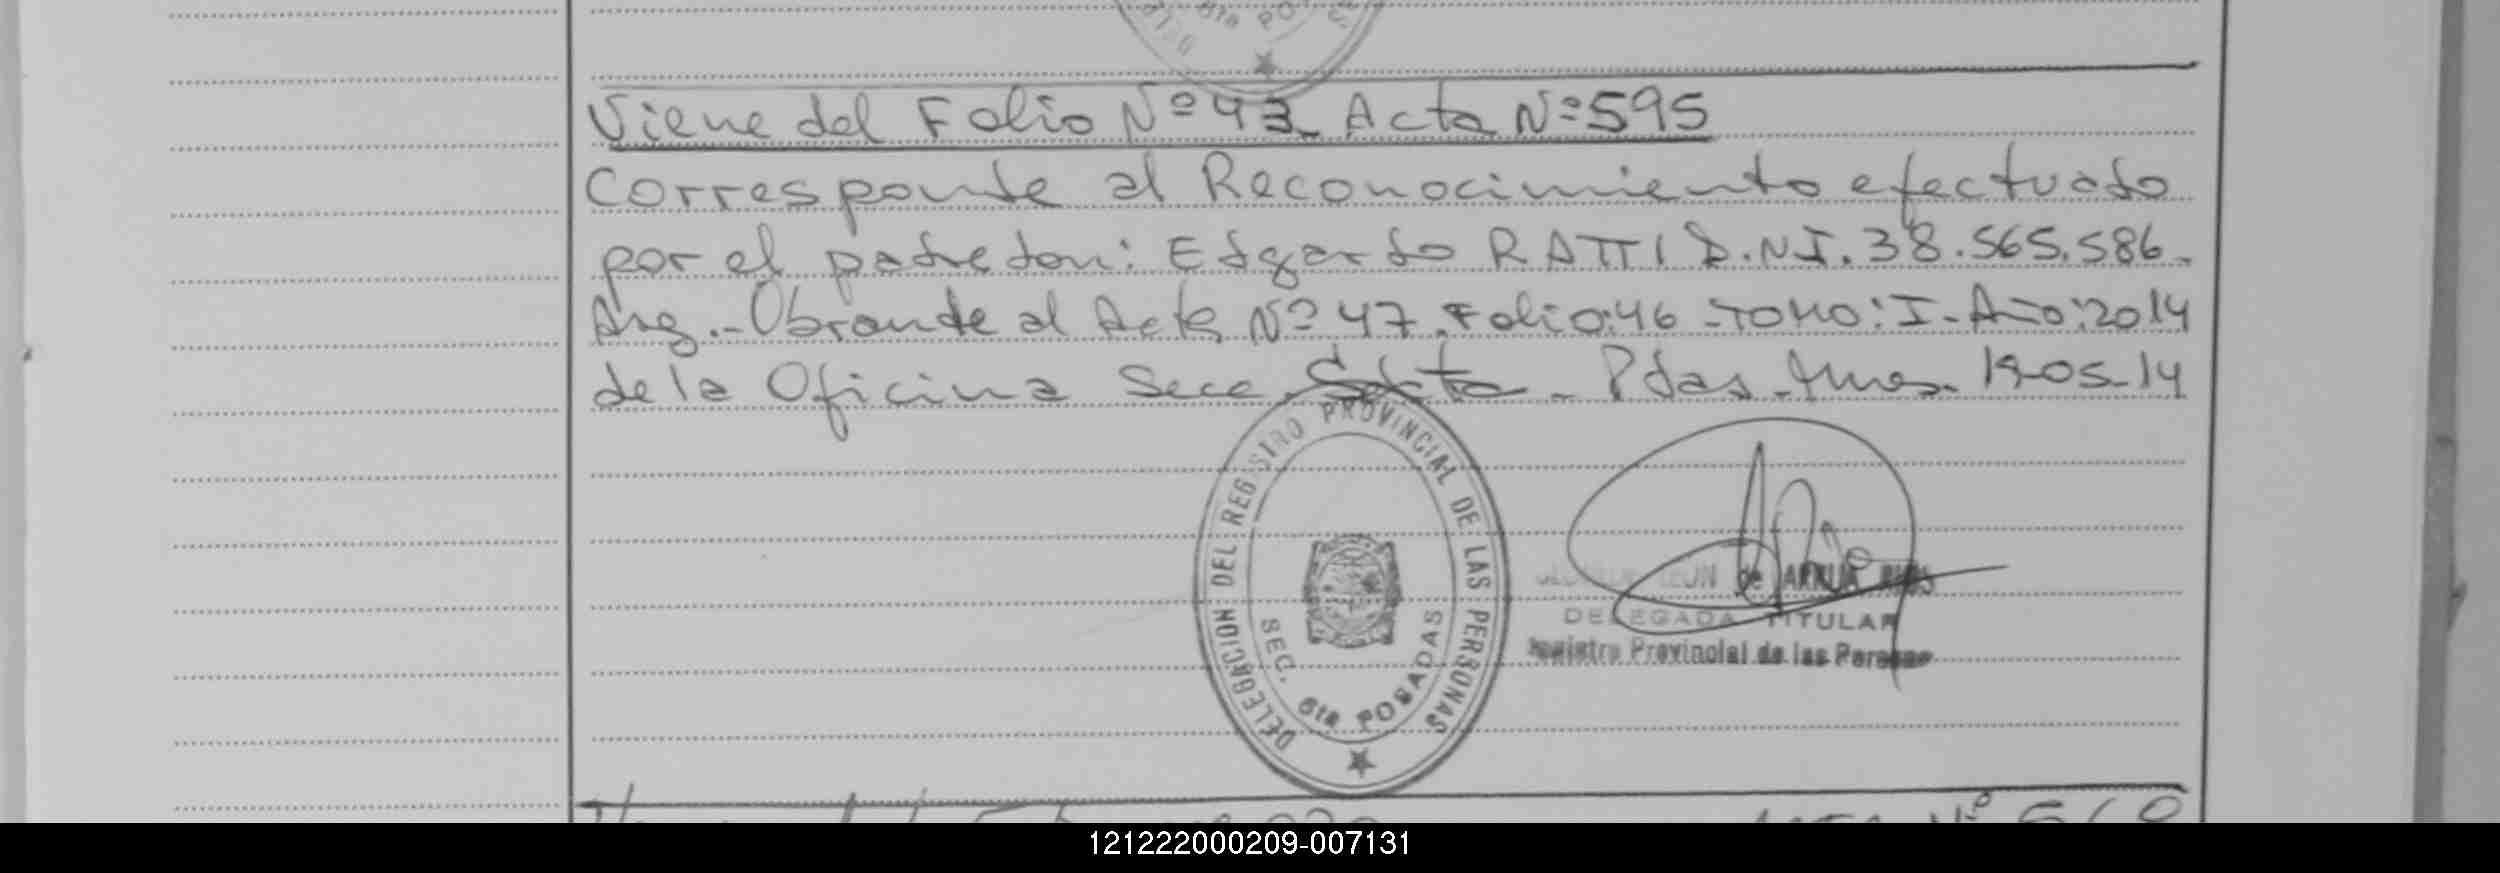 6ta PO
Viene del Folio Nº 43_ Acta Nº: 595
Corresponde al Reconocimiento efectuado
por el padre don: Edgardo RATTI D.N.I. 38.565.586_
Arg._ Obrante al Acta Nº 47. Folio: 46 - TOMO: I - Año: 2014
de la Oficina Secc. Sexta _ Pdas - Mnes. 19-05-14
DELEGACION DEL REGISTRO PROVINCIAL DE LAS PERSONAS
SEC. 6ta. POSADAS
LEON de ARRUA RIOS
DELEGADA TITULAR
Registro Provincial de las Personas
Nº
121222000209-007131